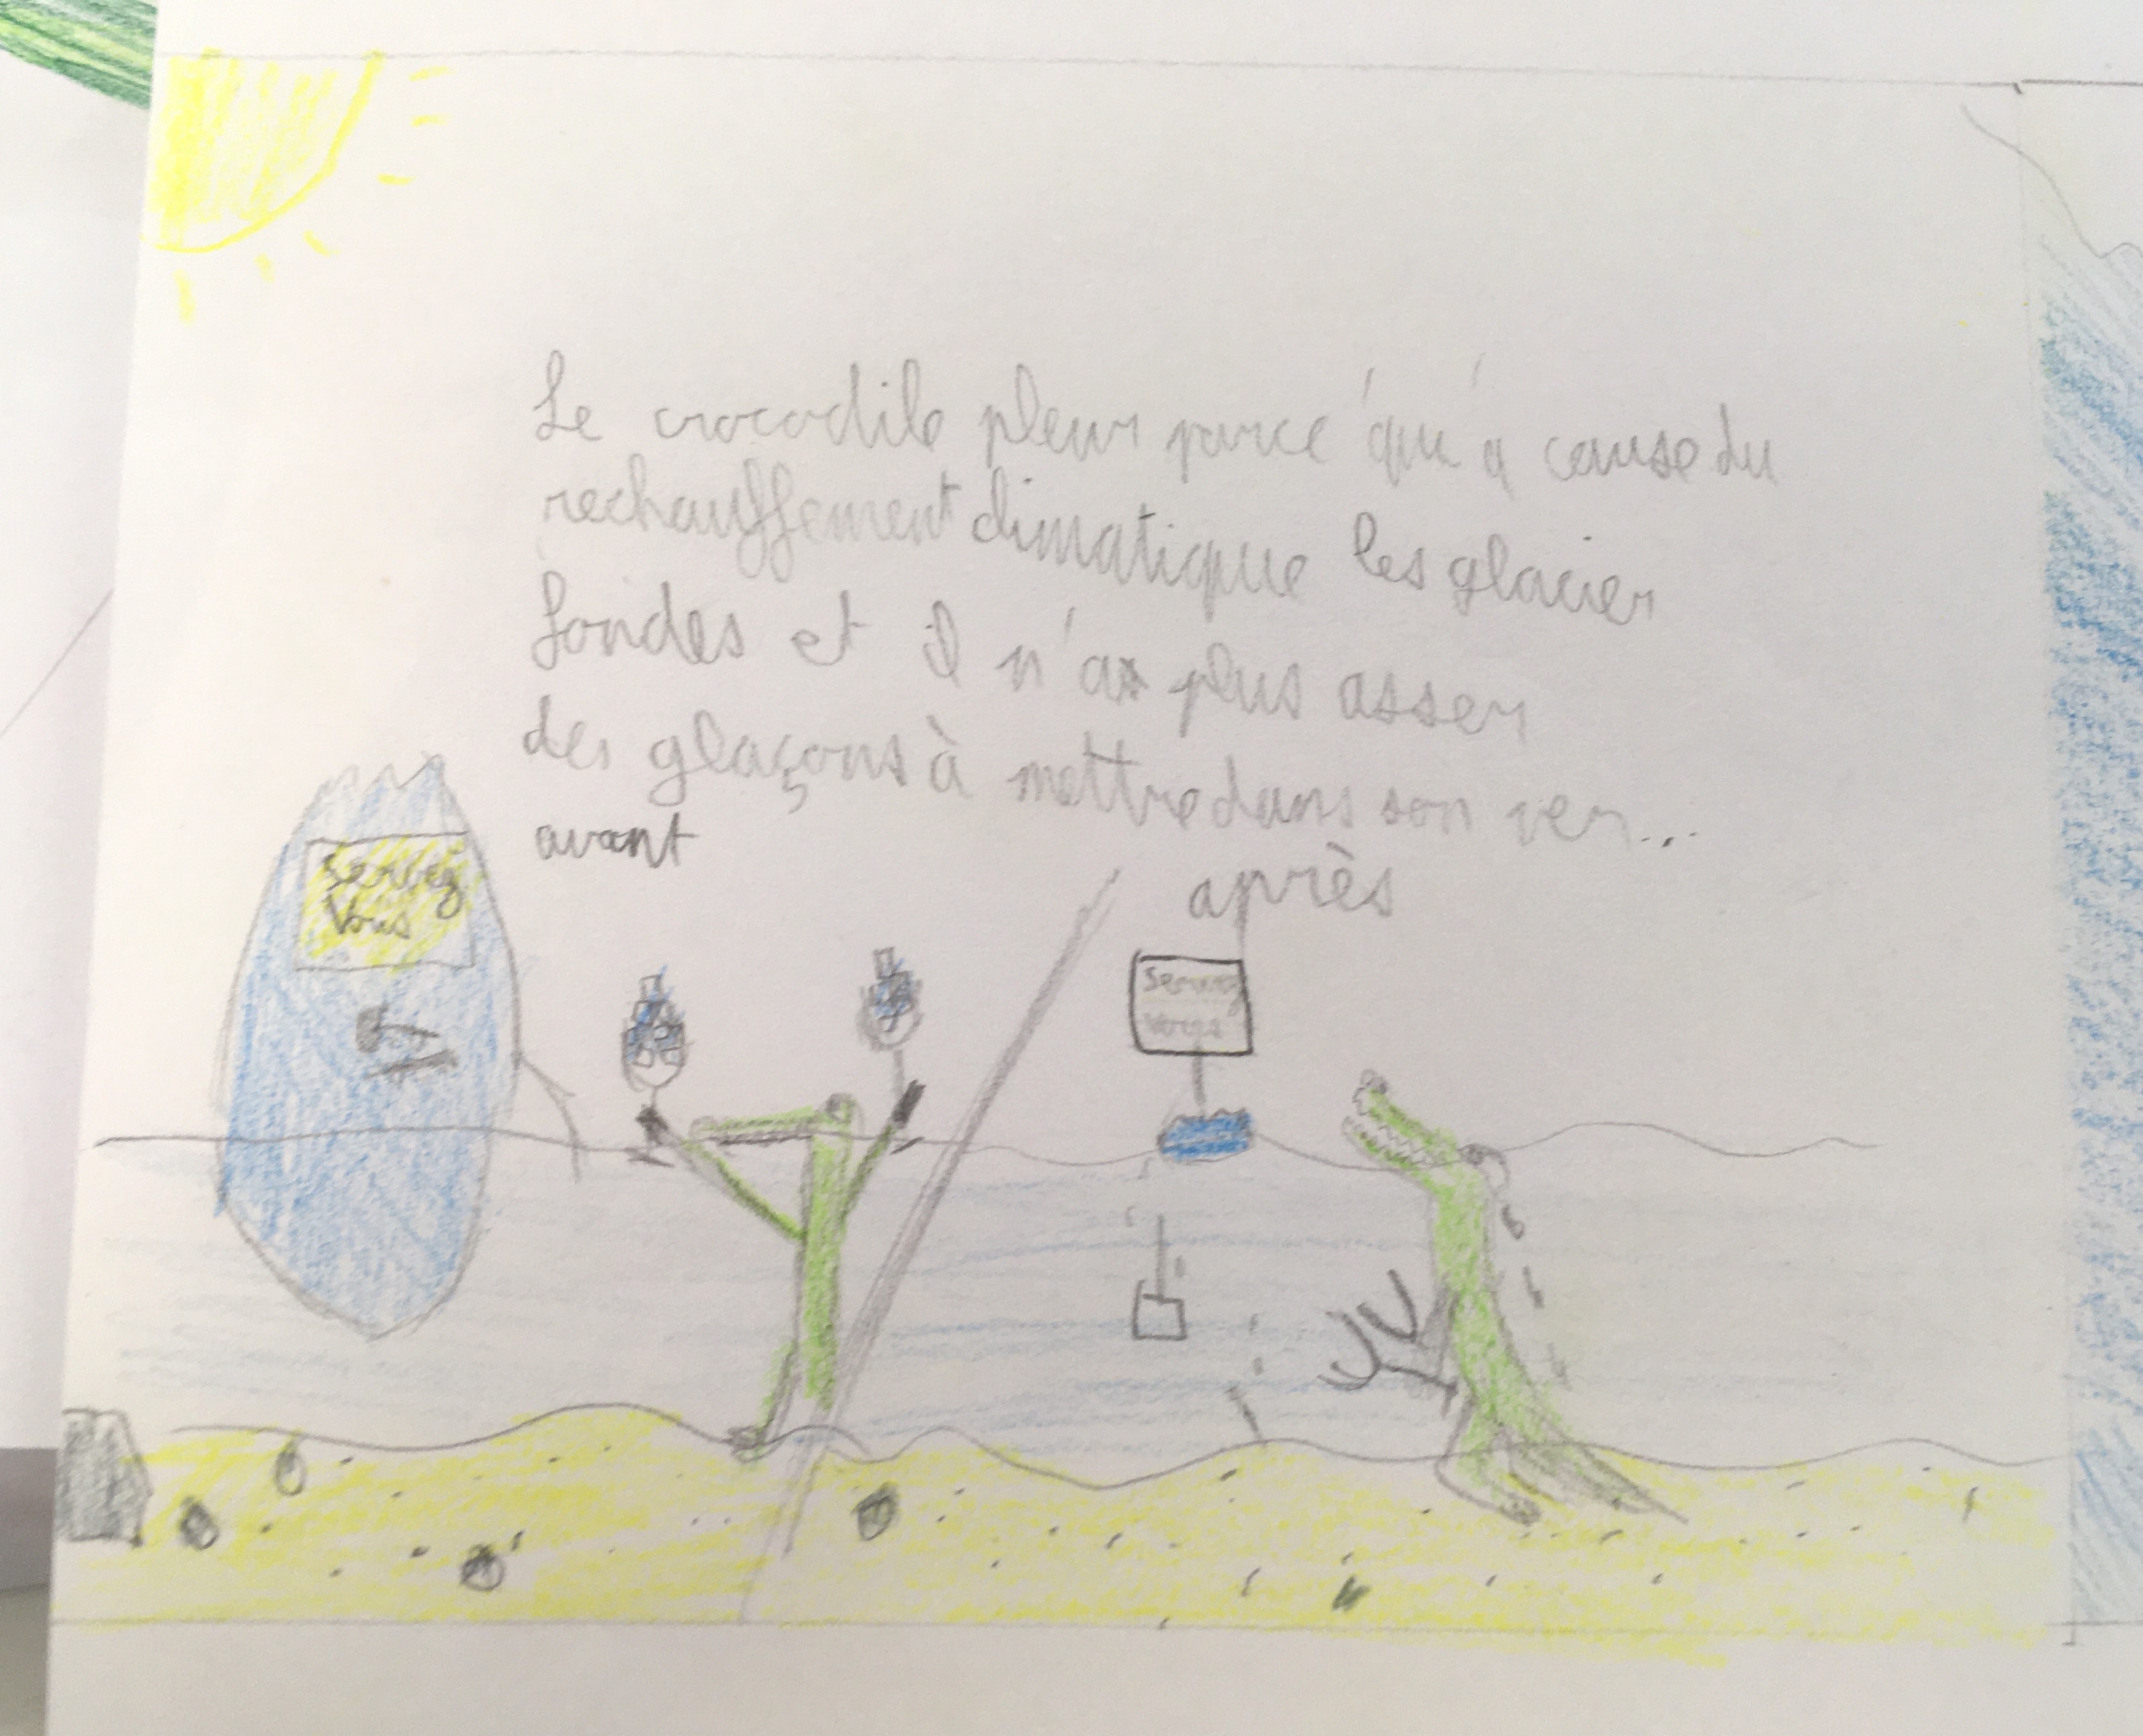 Le crocodile pleur parce'qu'a cause du
rechauffement climatique les glacier
fondes et il n'a plus asser
des glaçons à mettre dans son ver...
avant
après
Servez
Vous
Servez
Vous